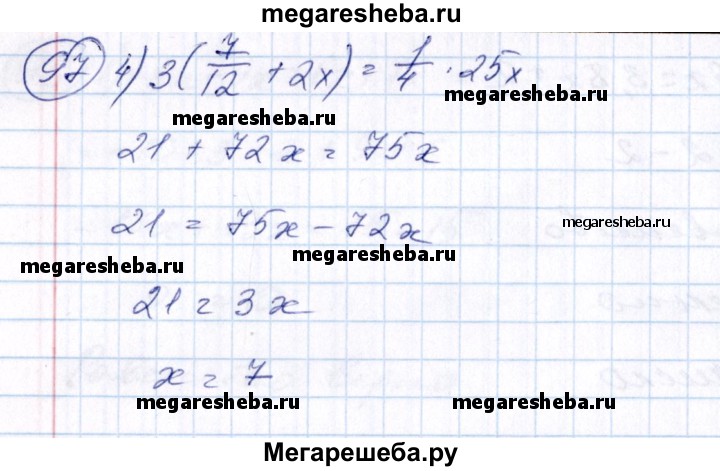 megaresheba.ru
97 4) 3(7/12 + 2x) = 1/4 · 25x
megaresheba.ru
megaresheba.ru
21 + 72x = 75x
21 = 75x - 72x
megaresheba.ru
megaresheba.ru
megaresheba.ru
21 = 3x
x = 7
megaresheba.ru
megaresheba.ru
Мегарешеба.ру